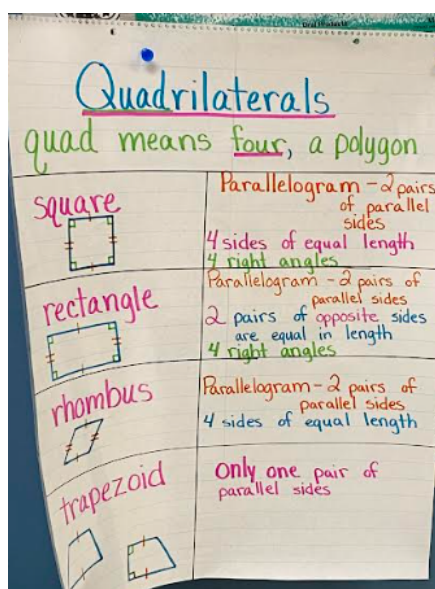 Quadrilaterals
quad means four, a polygon
square
Parallelogram - 2 pairs
of parallel
sides
4 sides of equal length
4 right angles
rectangle
Parallelogram - 2 pairs of
parallel sides
2 pairs of opposite sides
are equal in length
4 right angles
rhombus
Parallelogram - 2 pairs of
parallel sides
4 sides of equal length
trapezoid
Only one pair of
parallel sides